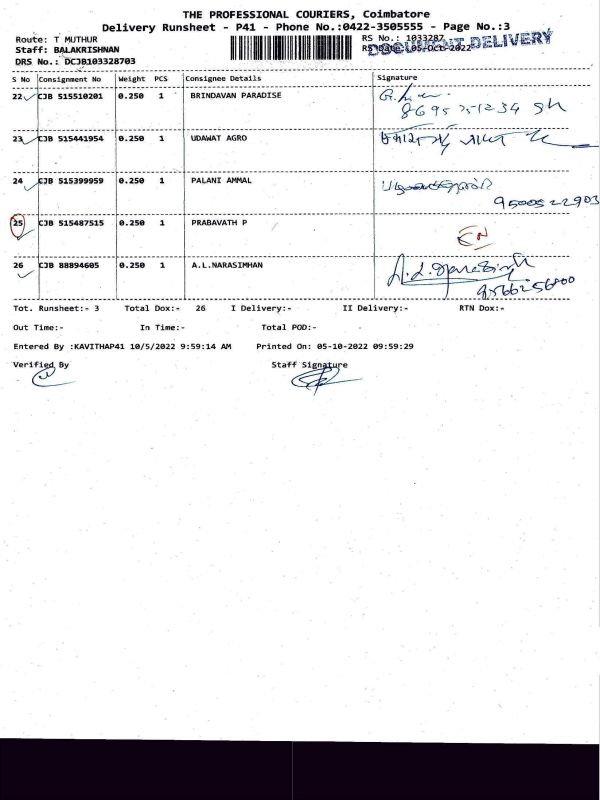 THE PROFESSIONAL COURIERS, Coimbatore
Delivery Runsheet - P41 - Phone No.:0422-3505555 - Page No.:3
Route: T MUTHUR
RS No.: 1033287
DOCUMENT DELIVERY
Staff: BALAKRISHNAN
RS Date: 05-Oct-2022
DRS No.: DCJB103328703
S No Consignment No Weight PCS Consignee Details Signature
22 CJB 515510201 0.250 1 BRINDAVAN PARADISE
23 CJB 515441954 0.250 1 UDAWAT AGRO
24 CJB 515399959 0.250 1 PALANI AMMAL
9500522903
25 CJB 515487515 0.250 1 PRABAVATH P
EN
26 CJB 88894605 0.250 1 A.L.NARASIMHAN
Tot. Runsheet:- 3 Total Dox:- 26 I Delivery:- II Delivery:- RTN Dox:-
Out Time:- In Time:- Total POD:-
Entered By :KAVITHAP41 10/5/2022 9:59:14 AM Printed On: 05-10-2022 09:59:29
Verified By Staff Signature